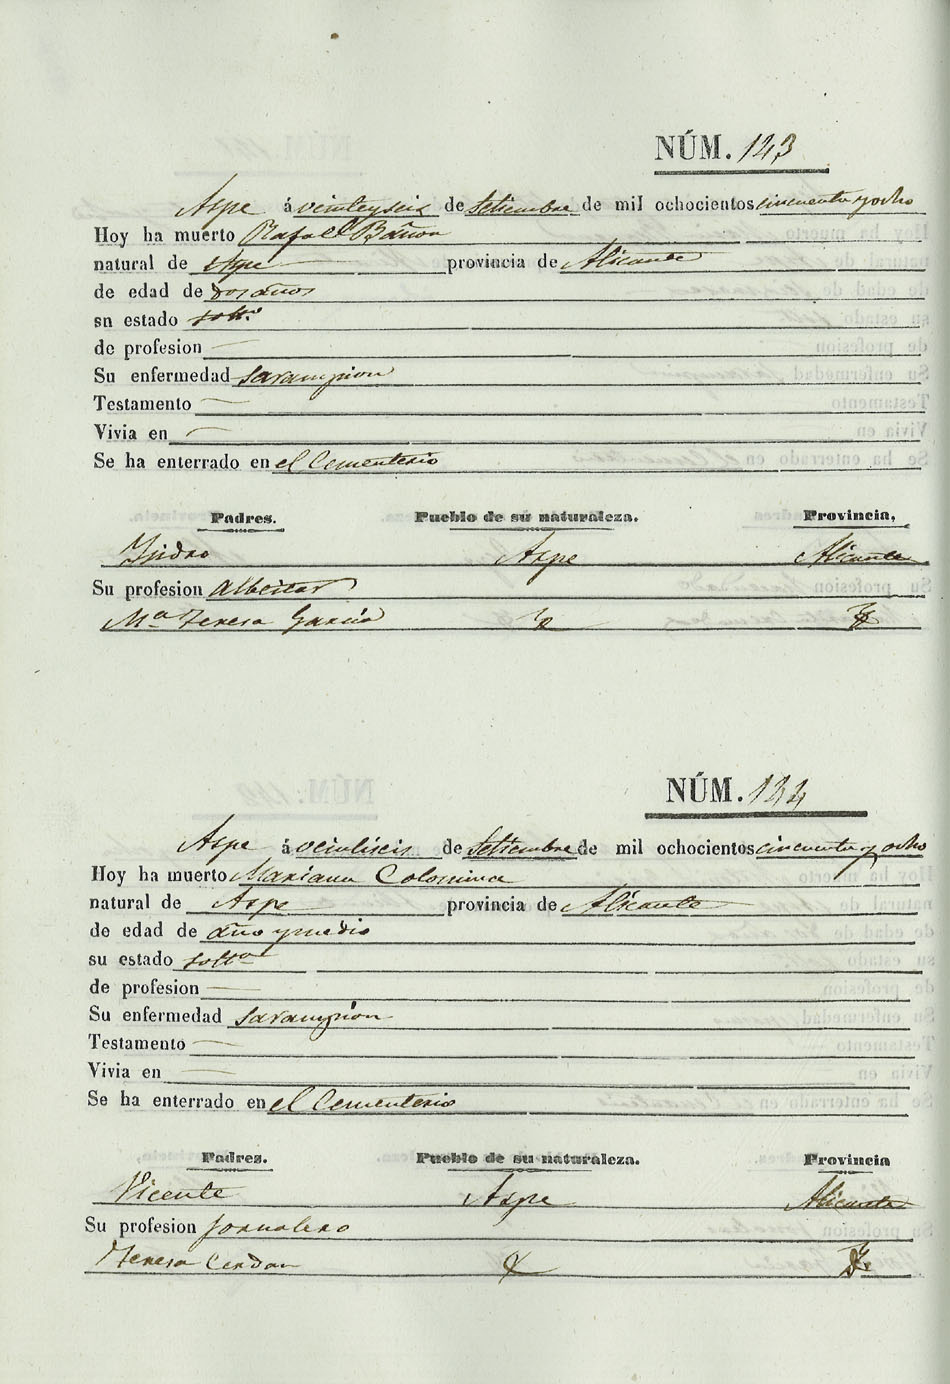 NÚM. 143
Aspe á veinteyseis de Setiembre de mil ochocientos cincuenta y ocho
Hoy ha muerto Rafael Bañon
natural de Aspe provincia de Alicante
de edad de dos años
sn estado solto
de profesion —
Su enfermedad sarampion
Testamento —
Vivia en —
Se ha enterrado en el Cementerio
Padres. Pueblo de su naturaleza. Provincia,
Ysidro Aspe Alicante
Su profesion albeitar
Ma Teresa Garcia
NÚM. 144
Aspe á veintiseis de Setiembre de mil ochocientos cincuenta y ocho
Hoy ha muerto Mariana Colomina
natural de Aspe provincia de Alicante
de edad de año y medio
su estado solta
de profesion —
Su enfermedad sarampion
Testamento —
Vivia en —
Se ha enterrado en el Cementerio
Padres. Pueblo de su naturaleza. Provincia
Vicente Aspe Alicante
Su profesion jornalero
Teresa Cerdan